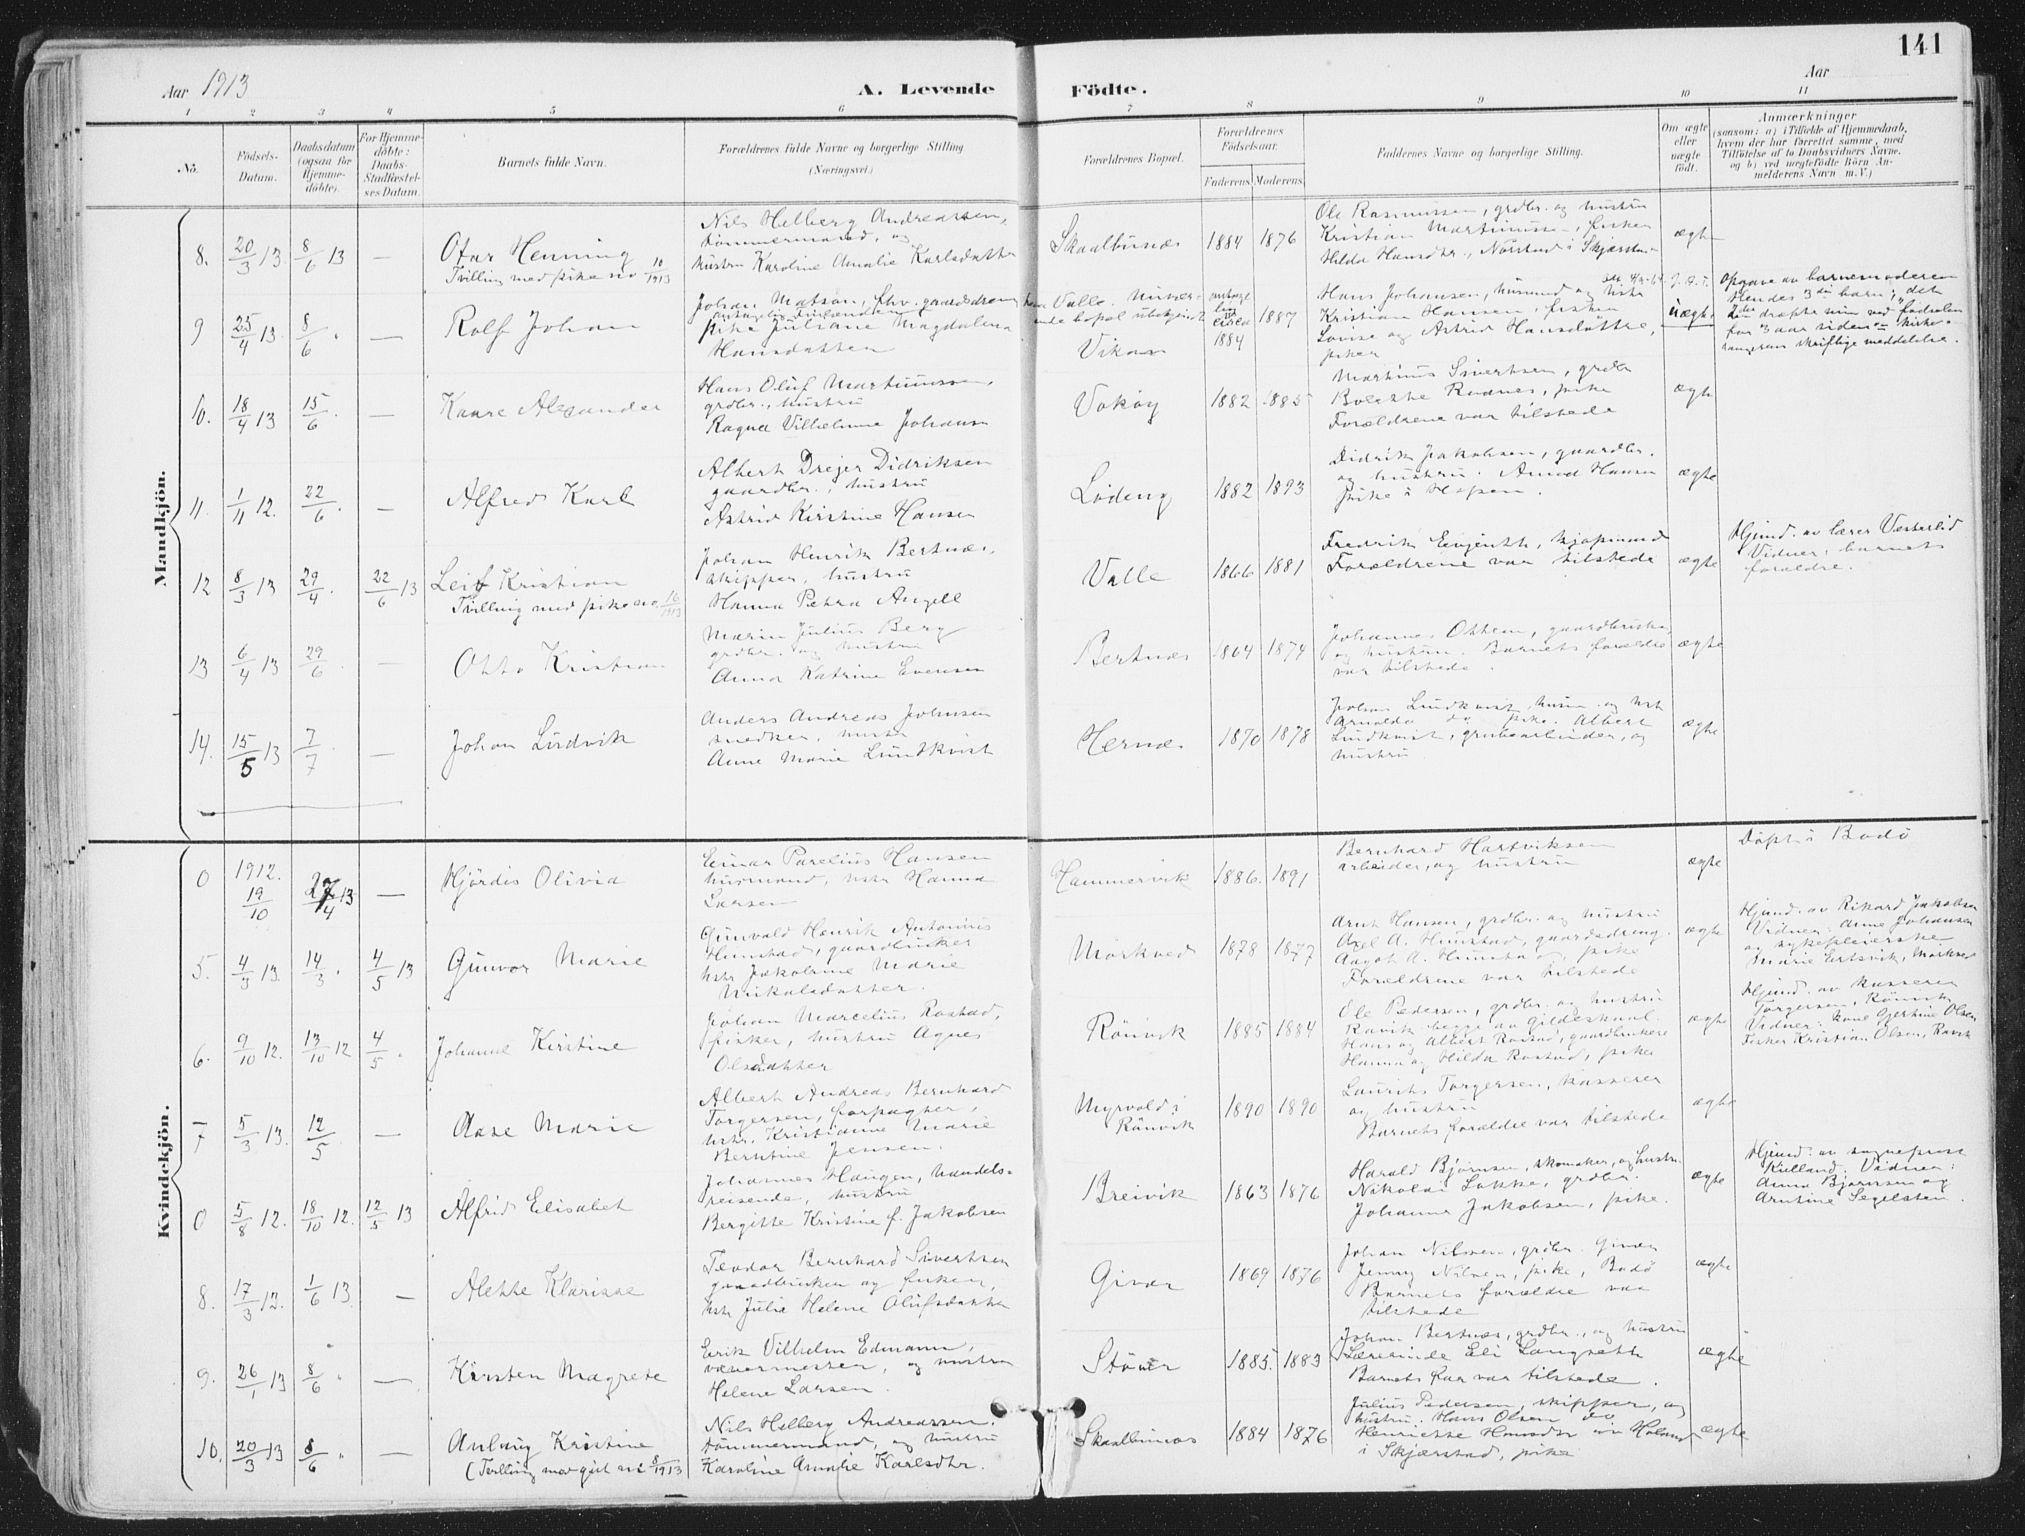 141
Aar 1913
A. Levende Födte.
Aar
1 2 3 4 5 6 7 8 9 10 11
No.
Födsels-Datum.
Daabsdatum (ogsaa for Hjemmedöbte).
For Hjemmedöbte: Daabs-Stadfæstelses Datum.
Barnets fulde Navn.
Forældrenes fulde Navne og borgerlige Stilling (Næringsvei.)
Forældrenes Bopæl.
Forældrenes Födselsaar.
Faderens. Moderens.
Faddernes Navne og borgerlige Stilling.
Om ægte eller uægte födt.
Anmærkninger
(saasom: a) i Tilfælde af Hjemmedaab, hvem der har forrettet samme, med Tilföielse af to Daabsvidners Navne, og b) ved uægtefödte Börn Anmelderens Navn m. V.)
Mandkjön.
8. 20/3 13 8/6 13 — Otar Henning
Tvilling med pike no 10/1913
Nils Helberg Andreassen,
tömmermand, og
hustru Karoline Amalie Karlsdatter
Skaalbunæs 1884 1876
Ole Rasmussen, grdbr. og hustru
Kristian Martinussen, fisker
Hilda Hansdtr.,
ægte
9 25/4 13. 8/6 " — Rolf Johan
Johan Matson,
pike Juliane Magdalena
Hansdatter
Valle.
Vikan
circa 1884 1887
Hans Johansen, husmand og hustru
Kristian Hansen, fisker
Lovise og Astrid Hansdøttre,
piker
uægte
Opgave av barnemoderen
Hendes 3die barn;
for 3 aar siden
skriftlige meddelelse.
10. 18/4 13 15/6 " — Kaare Alexander
Hans Oluf Martinussen,
grdbr., hustru
Ragna Vilhelmine Johansen
Vokøy 1882 1885
Martinus Sivertsen, grdbr
Bolette Rødnes, pike
Forældrene var tilstede
ægte
11. 1/11 12. 22/6 " — Alfred Karl
Albert Drejer Didriksen
gaardbr., hustru
Astrid Kirstine Hansen
Löding 1882 1893
Didrik Jakobsen, gaardbr.
og hustru. Anna Hansen
pike i Hopen.
ægte
12 8/3 13 29/4 " 22/6 13 Leif Kristian
Tvilling med pike no. 16/1913
Johan Henrik Bertnæs,
skipper, hustru
Hanna Petra Angell
Valle 1866 1881
Fredrik Engenth, kjøpmand
Forældrene var tilstede
ægte
Hjemd. av lærer Vesterlid
Vidner: barnets
forældre.
13 6/4 13 29/6 " — Otto Kristian
Marin Julius Berg
grdbr. og hustru
Anna Katrine Evensen
Bertnæs 1864 1874
Johannes Ottem, gaardbruker
og hustru. Barnets forældre
var tilstede.
ægte
14. 15/5 13 7/7 — Johan Ludvik
Anders Andreas Johnsen
snedker, hustru
Anne Marie Lundkvist
Hernæs 1870 1878
Johan Lundkvist, husm. og hstr
Arnolda do pike. Albert
Lundkvist, grubearbeider, og
hustru
ægte
Kvindekjön.
0 1912. 19/10 27/4 13 — Hjördis Olivia
Einar Parelius Hansen
husmand, hstr Hanna
Larsen
Hammervik 1886. 1891
Bernhard Hartviksen
arbeider, og hustru
ægte
Döpt i Bodö
5. 4/3 13. 14/3 " 4/5 13 Gunvor Marie
Gunvald Henrik Antonius
Hunstad, gaardbruker
hstr Jakobine Marie
Nikolaidatter.
Mörkved 1878 1877
Arnt Hansen, grdbr. og hustru
Axel A. Hunstad, gaardsdreng.
Aagot A. Hunstad, pike
Forældrene var tilstede
ægte
Hjemd. av Rikard Jakobsen
Vidner: Anne Johansen
og sykepleierske
Marie Ertsvik, Mörkved
6. 9/10 12. 13/10 12 4/5 " Johanne Kirstine
Johan Marcelius Rostad,
fisker, hustru Agnes
Olsdatter
Rönvik 1885 1884
Ole Pedersen, grdbr. og hustru
Ravik begge av Gildeskaal.
Hans og Albert Rostad, gaardbrukere
Hanna og Hilda Rostad, piker
ægte
Hjemd. av kasserer
Torgersen, Rönvik
Vidner: Kone Gjertine Olsen
Fisker Kristian Olsen, Ravik
7 5/3 13. 12/5 — Aase Marie
Albert Andreas Bernhard
Torgersen, forpagter,
hstr. Kristianne Marie
Berntine Jensen.
Myrvold i
Rönvik 1890 1890
Laurits Torgersen, kasserer
og hustru
Barnets forældre var tilstede
ægte
0 5/8 12. 18/10 12. 12/5 13 Alfrid Elisabet
Johannes Haugen, handels-
reisende, hustru
Bergitte Kristine f. Jakobsen
Breivik 1863 1876
Harald Björnsen, skomaker, og hustru
Nikolai Løkke, grdbr.
Johanna Jakobsen, pike.
ægte
Hjemd. av sogneprest
Kulland. Vidner:
Anna Björnsen og
Arntine Segelsten.
8. 17/3 12. 1/6 13. — Alette Klarisse
Teodor Bernhard Sivertsen
gaardbruker og fisker,
hstr Julia Helene Olufsdatter
Givær 1869 1876
Johan Nilssen, grdbr. Givær
Jenny Nilsen, pike, Bodö
Barnets forældre var
tilstede
ægte
9. 26/1 13 8/6 " — Kirsten Magrete
Eirik Vilhelm Edmann,
vævermester, og hustru
Helene Larsen.
Stöver 1885. 1883
Johan Bertnæs, grdbr., og hustru
Lærerinde Eli Langsetth
Barnets far var tilstede.
ægte
10. 20/3 13 8/6 " — Anbiug Kristine
(Tvilling med gut no 8/1913
Nils Helberg Andreassen.
tömmermand, og hustru
Karoline Amalie Karlsdtr.
Skaalbunæs 1884 1876
Julius Pedersen, skipper, og
hustru. Hans Olsen do
Henriette Hansdtr
i Skjærstad, pike
ægte